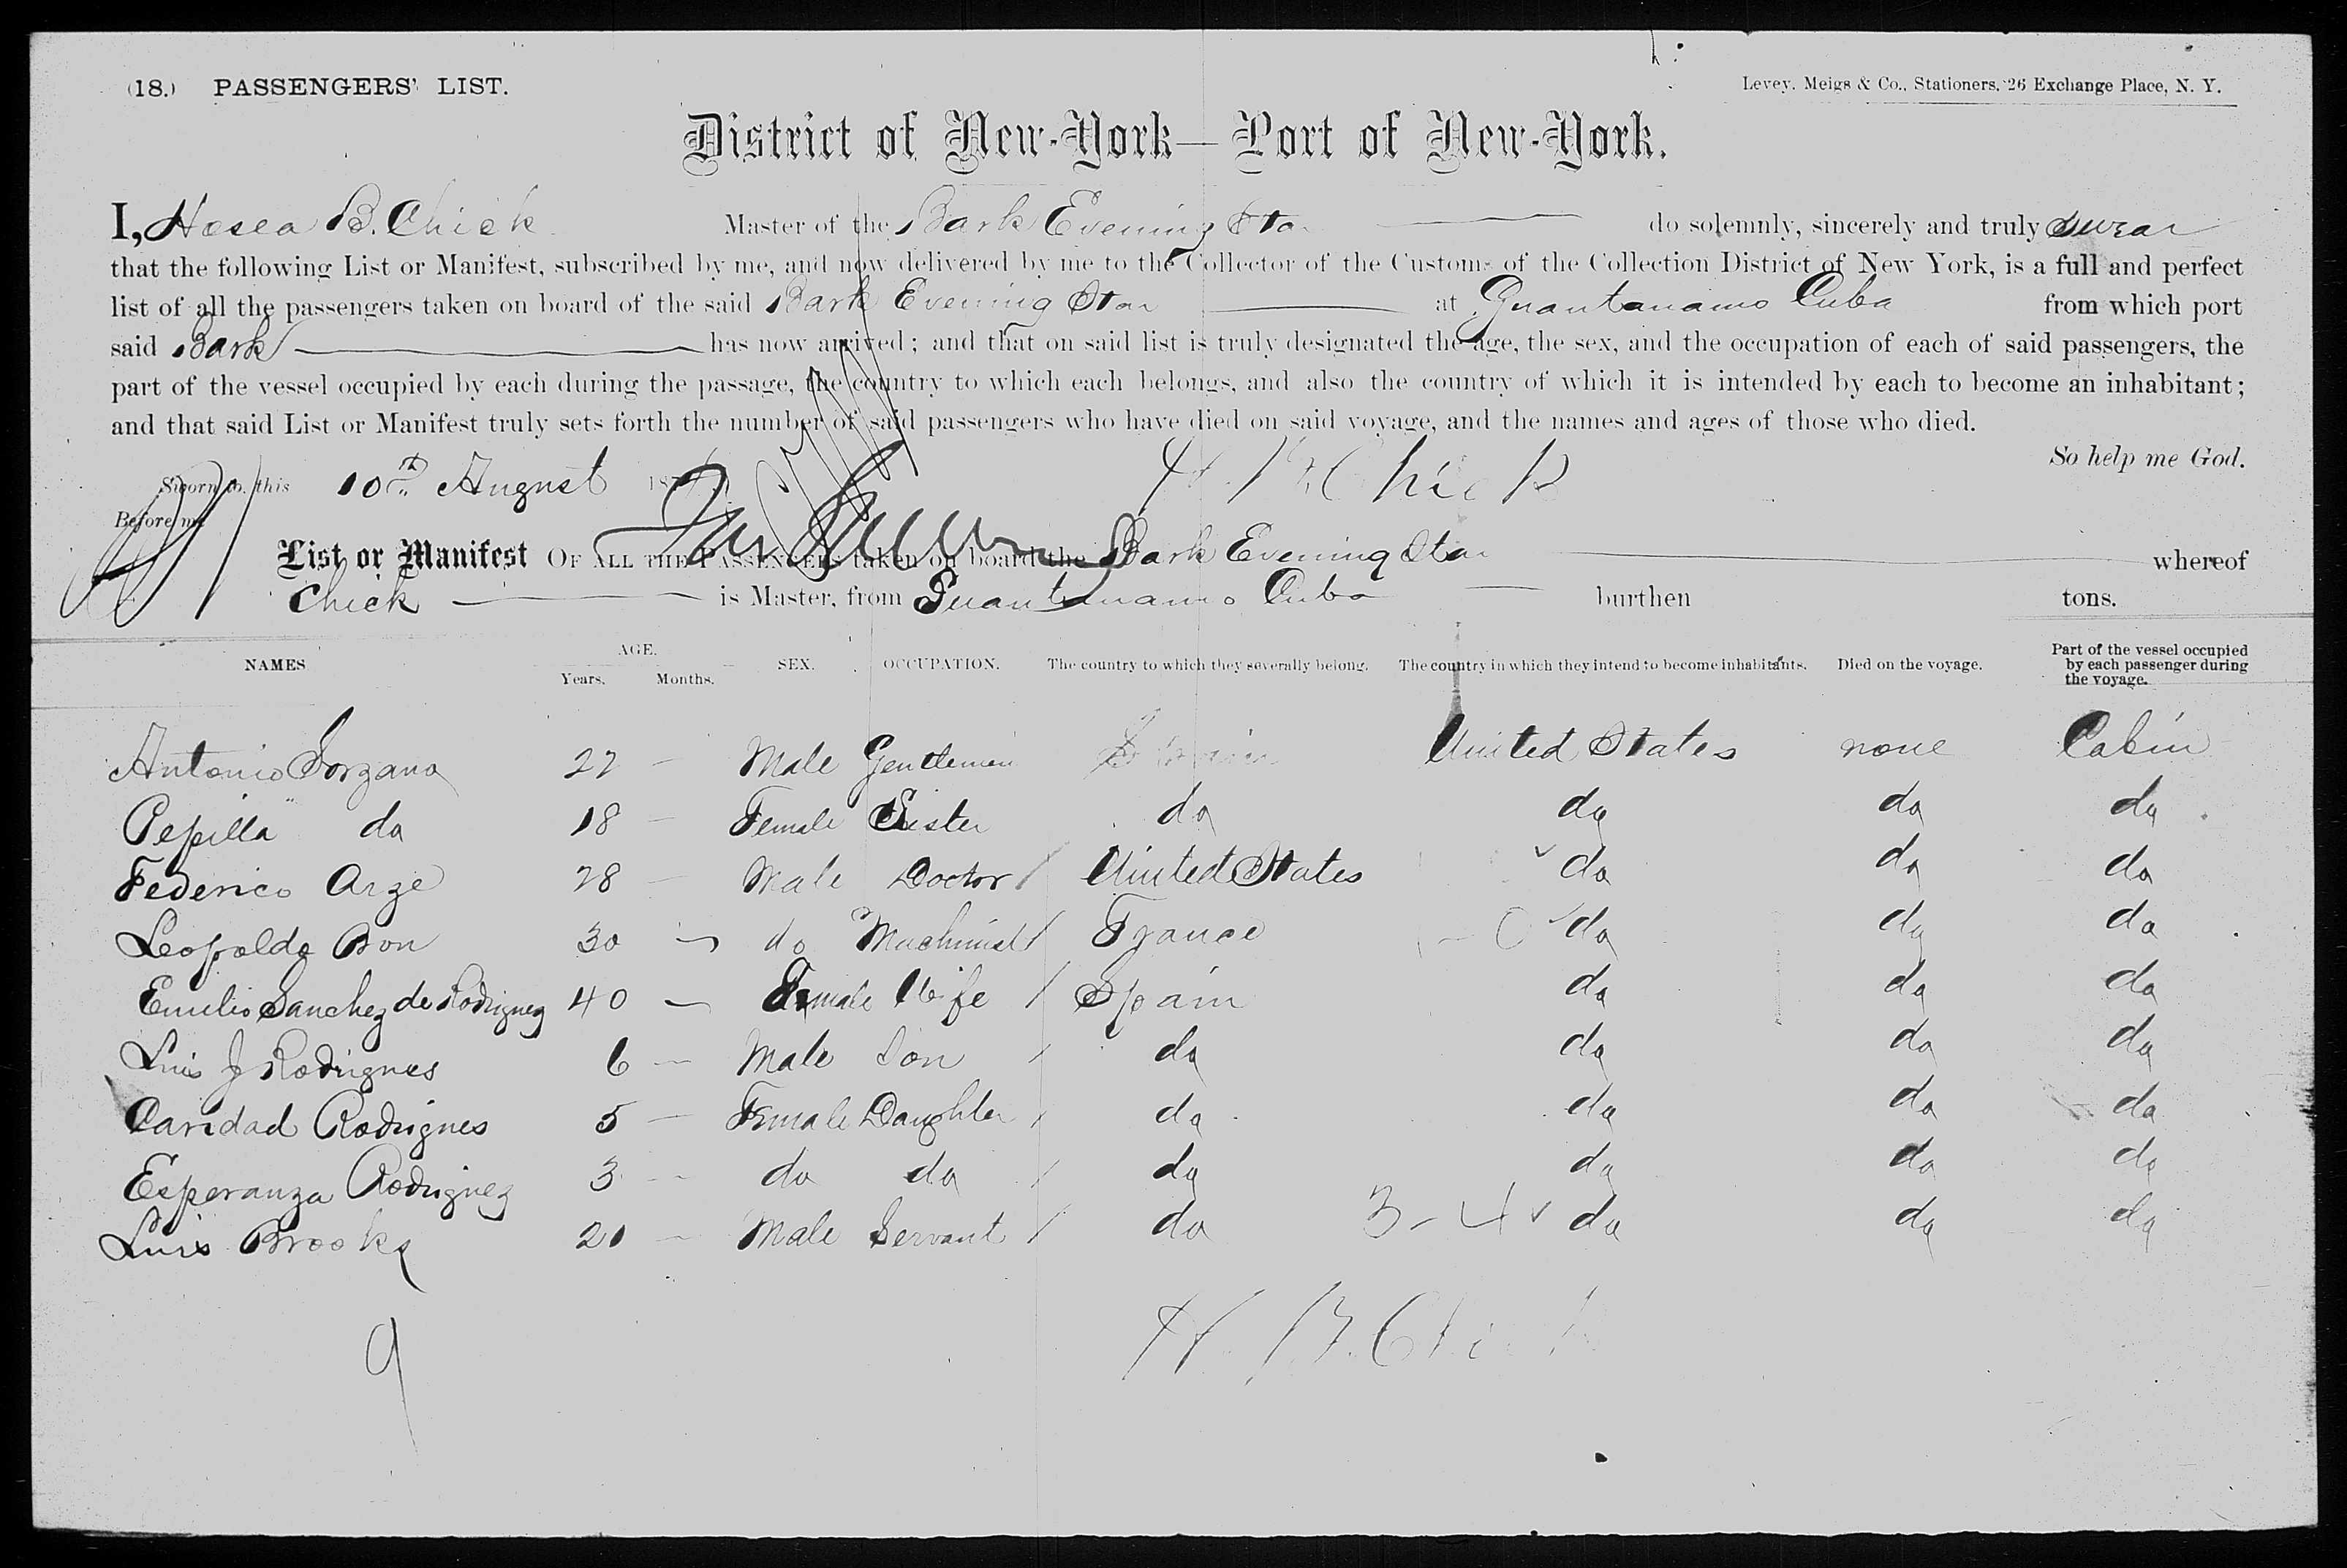 (18.) PASSENGERS' LIST. Levey, Meigs & Co., Stationers, 26 Exchange Place, N. Y.
District of New-York— Port of New-York.
I, Hosea B. Chick Master of the Bark Evening Star do solemnly, sincerely and truly swear
that the following List or Manifest, subscribed by me, and now delivered by me to the Collector of the Customs of the Collection District of New York, is a full and perfect
list of all the passengers taken on board of the said Bark Evening Star at Guantanamo Cuba from which port
said Bark has now arrived; and that on said list is truly designated the age, the sex, and the occupation of each of said passengers, the
part of the vessel occupied by each during the passage, the country to which each belongs, and also the country of which it is intended by each to become an inhabitant;
and that said List or Manifest truly sets forth the number of said passengers who have died on said voyage, and the names and ages of those who died.
So help me God.
Sworn to, this 10th August 187 H. B. Chick
Before me
List or Manifest OF ALL THE PASSENGERS taken on board the Bark Evening Star whereof
Chick is Master, from Guantanamo Cuba burthen tons.
NAMES AGE. Years. Months. SEX. OCCUPATION. The country to which they severally belong. The country in which they intend to become inhabitants. Died on the voyage. Part of the vessel occupied by each passenger during the voyage.
Antonio Sorzano 22 — Male Gentlemen United States none Cabin
Pepilla do 18 — Female Sister do do do do
Federico Arze 28 — Male Doctor / United States do do do
Leopoldo Bon 30 — do Machinist / France do do do
Emilio Sanchez de Rodriguez 40 — Female Wife / Spain do do do
Luis J Rodrigues 6 — Male Son / do do do do
Caridad Rodrigues 5 — Female Daughter / do do do do
Esperanza Rodriguez 3 — do do / do do do do
Luis Brooks 21 — Male Servant / do 3-4 do do do
9 H. B. Chick